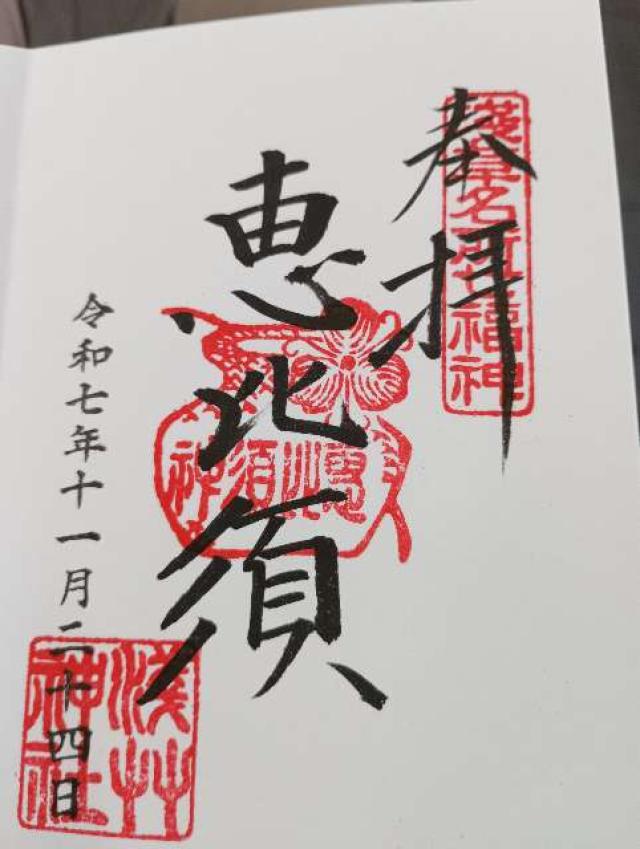 奉拝
淺草名所七福神
恵比須
恵比須神
令和七年十一月二十四日
浅草神社